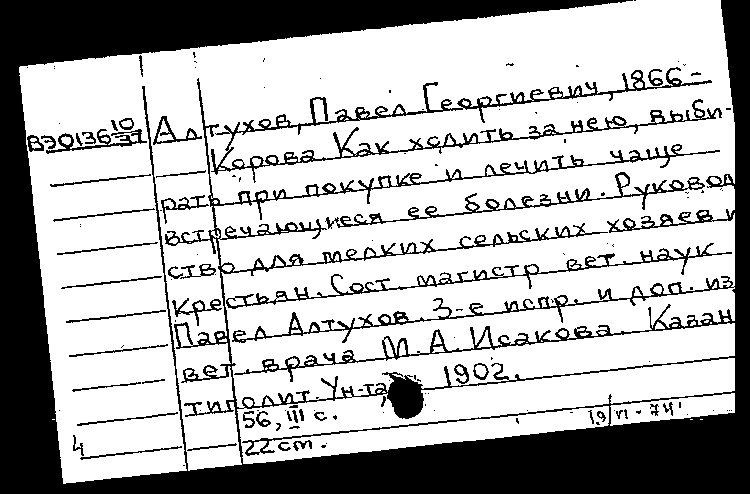 ВЭ0136 10/37 Алтухов, Павел Георгиевич, 1866-
Корова. Как ходить за нею, выби-
рать при покупке и лечить чаще
встречающиеся ее болезни. Руковод
ство для мелких сельских хозяев и
крестьян. Сост. магистр вет. наук
Павел Алтухов. 3-е испр. и доп. из
вет. врача М. А. Исакова. Казан
типолит. Ун-та, 1902.
56, III с.
19/VI-74
4 22 cm.